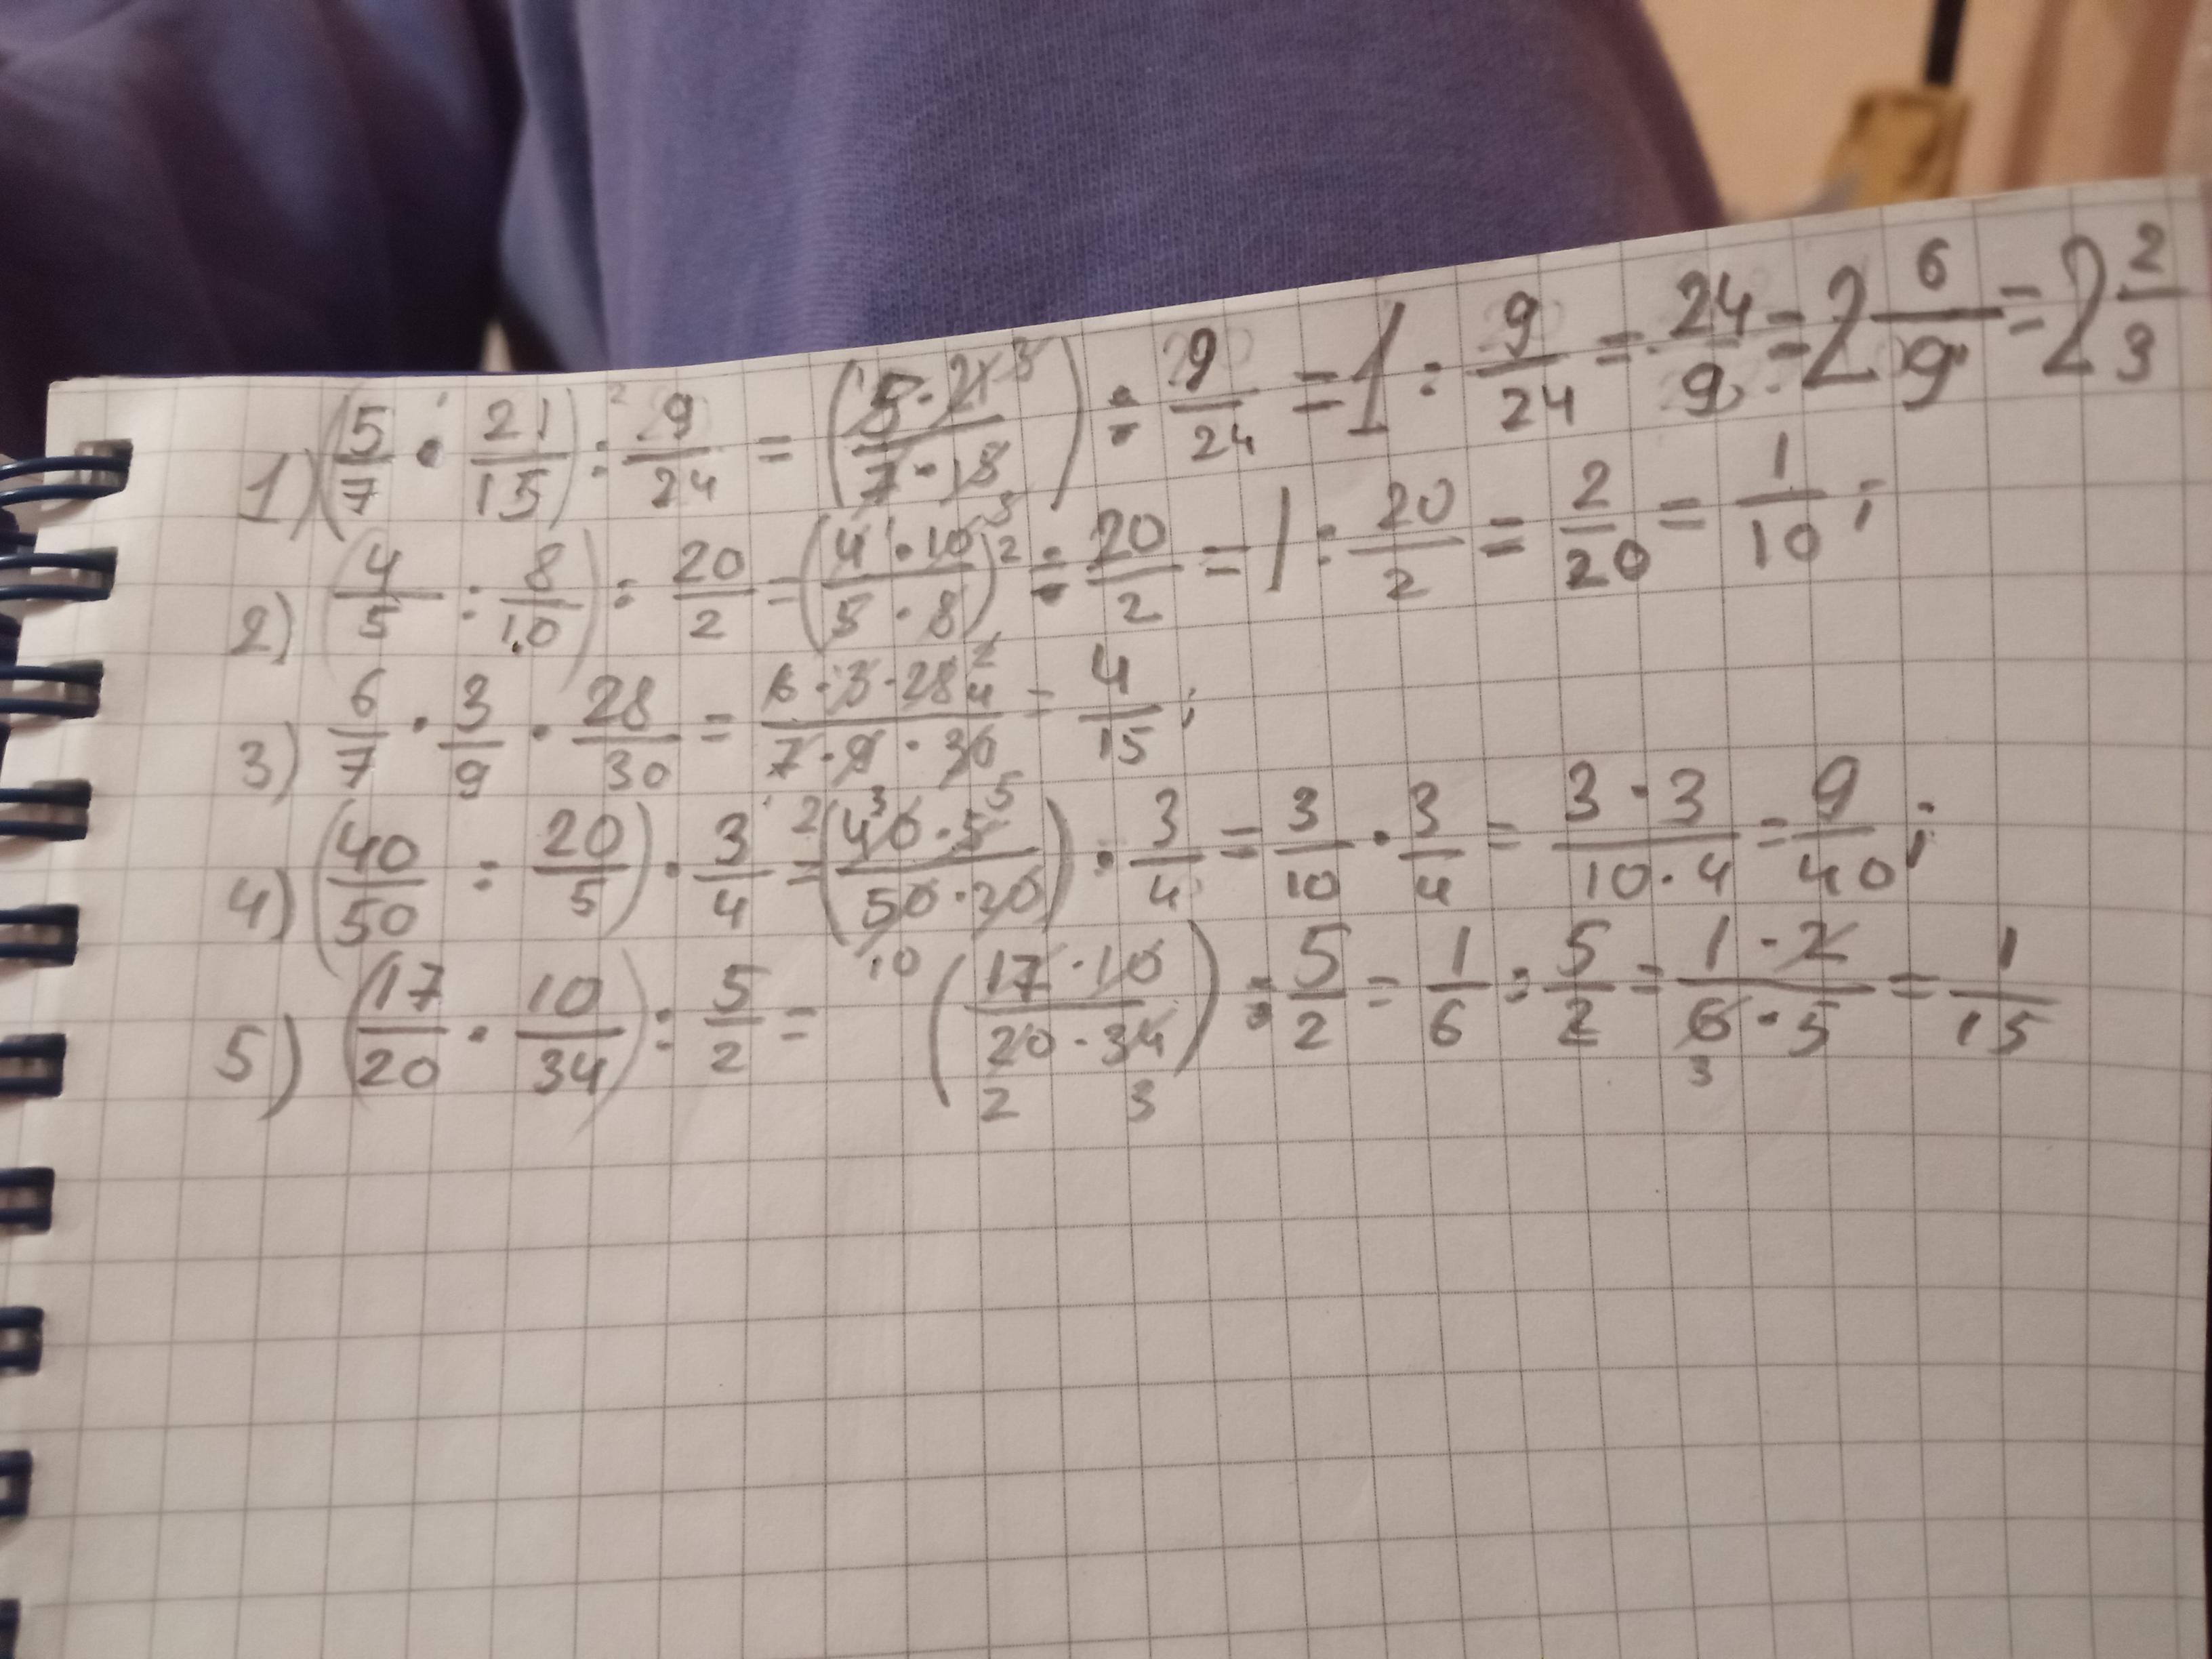 1) (5/7 · 21/15) : 9/24 = (5·21 3/7·15) : 9/24 = 1 : 9/24 = 24/9 = 2 6/9 = 2 2/3
2) (4/5 : 8/10) : 20/2 = (4·10/5·8) 2 : 20/2 = 1 : 20/2 = 2/20 = 1/10;
3) 6/7 · 3/9 · 28/30 = 6·3·28 4/7·9·30 = 4/15;
4) (40/50 : 20/5) · 3/4 = (40·5/50·20) · 3/4 = 3/10 · 3/4 = 3·3/10·4 = 9/40;
10
5) (17/20 · 10/34) : 5/2 = (17·10/20·34) : 5/2 = 1/6 : 5/2 = 1·2/6·5 = 1/15
2 3 3